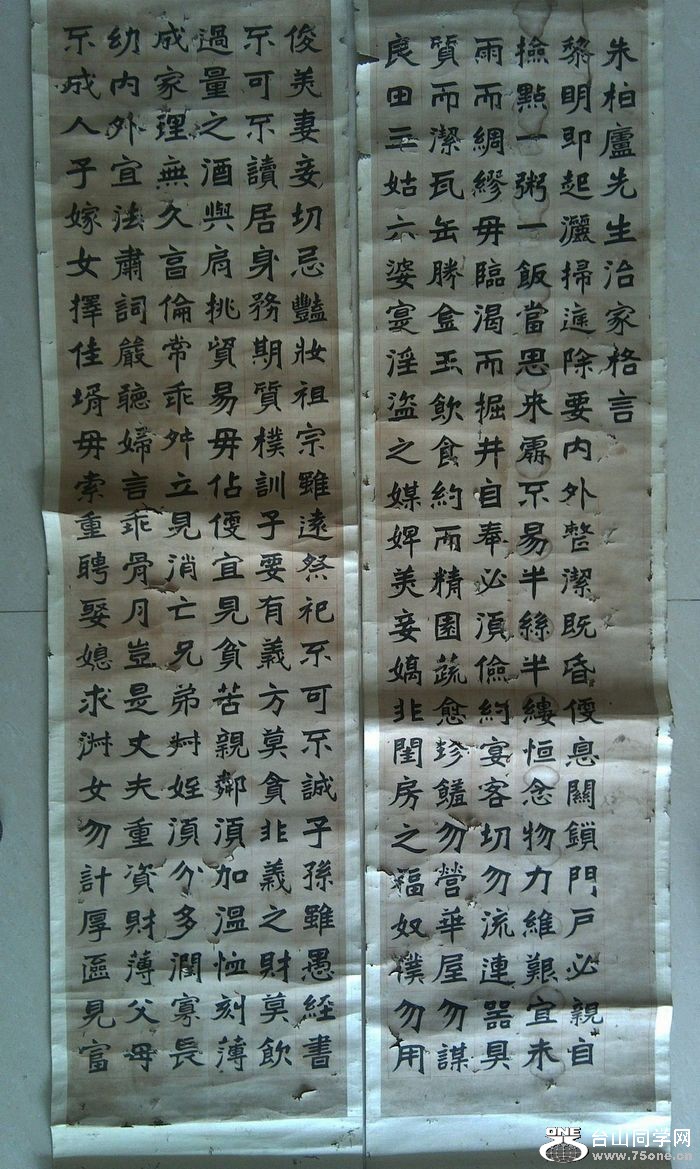 朱柏廬先生治家格言
黎明即起灑掃庭除要內外整潔既昏便息關鎖門戶必親自
撿點一粥一飯當思來處不易半絲半縷恒念物力維艱宜未
雨而綢繆毋臨渴而掘井自奉必須儉約宴客切勿流連器具
質而潔瓦缶勝金玉飲食約而精園蔬愈珍饈勿營華屋勿謀
良田三姑六婆寔淫盜之媒婢美妾嬌非閨房之福奴僕勿用
俊美妻妾切忌豔妝祖宗雖遠祭祀不可不誠子孫雖愚經書
不可不讀居身務期質樸訓子要有義方莫貪非義之財莫飲
過量之酒與肩挑貿易毋佔便宜見貧苦親鄰須加溫恤刻薄
成家理無久享倫常乖舛立見消亡兄弟叔姪須分多潤寡長
幼內外宜法肅詞嚴聽婦言乖骨月豈是丈夫重資財薄父母
不成人子嫁女擇佳壻毋索重聘娶媳求淑女勿計厚匳見富
ONE
台山同学网
www.75one.cn